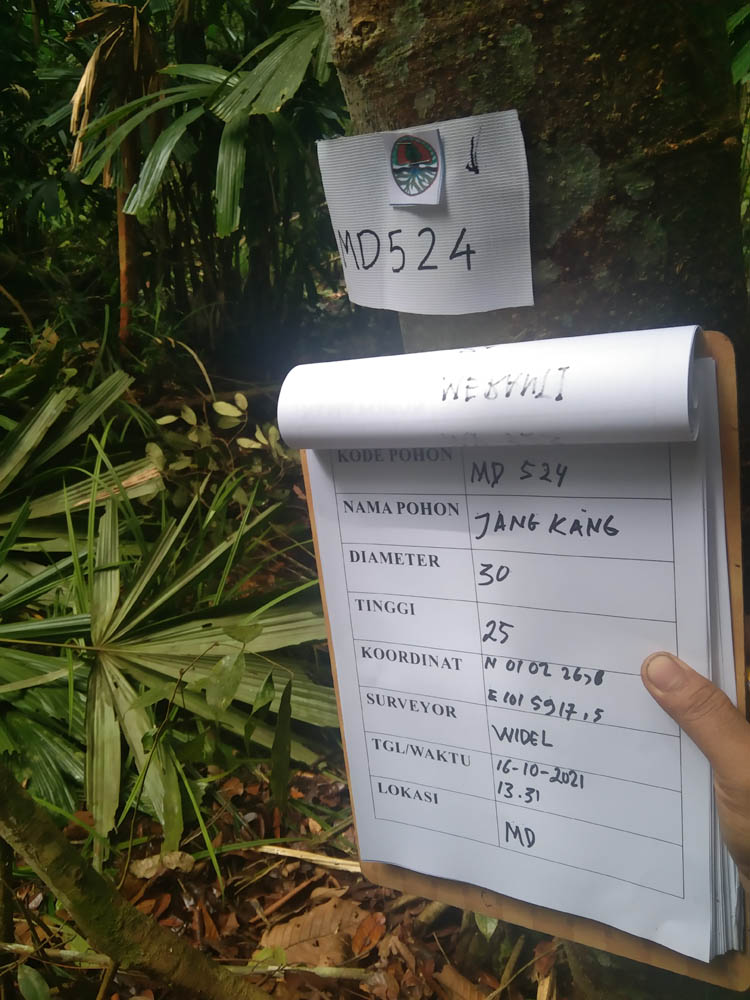 MD524
MERAWI
KODE POHON MD 524
NAMA POHON JANGKANG
DIAMETER 30
TINGGI 25
KOORDINAT N 01 02
E 101 5917,5
SURVEYOR WIDEL
TGL/WAKTU 16-10-2021
13.31
LOKASI MD